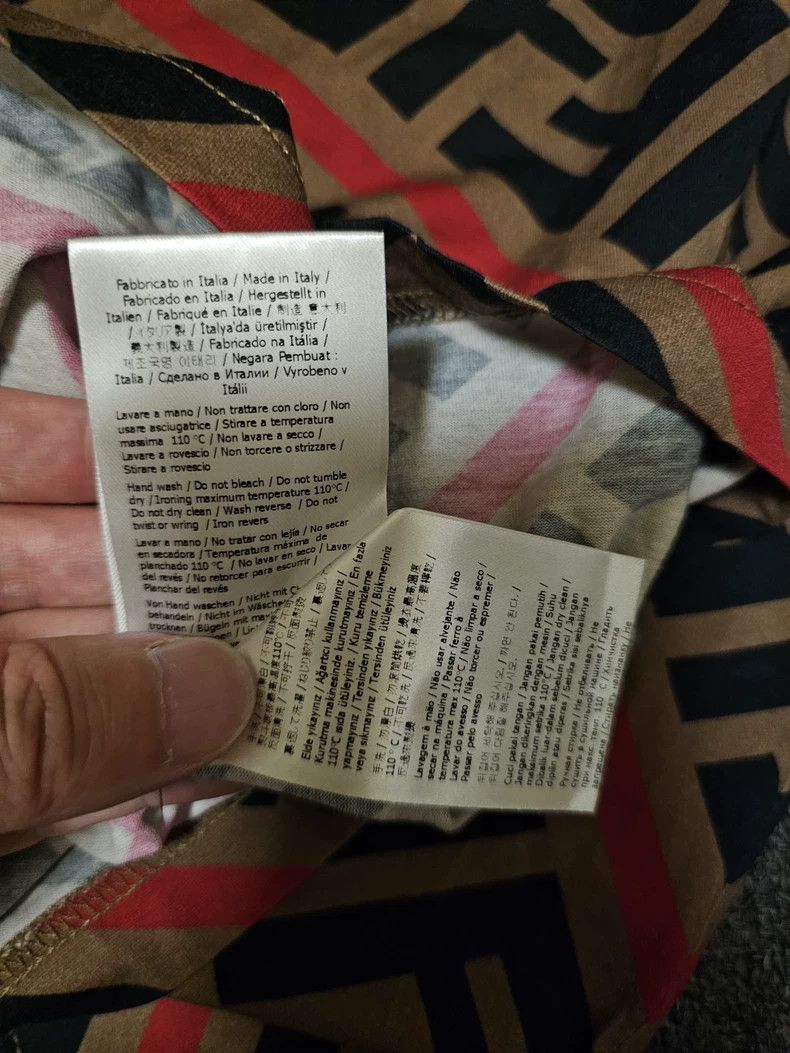 Fabbricato in Italia / Made in Italy /
Fabricado en Italia / Hergestellt in
Italien / Fabriqué en Italie / 制造 意大利
/ イタリア製 / İtalya'da üretilmiştir /
義大利製造 / Fabricado na Itália /
제조국명 이태리 / Negara Pembuat :
Italia / Сделано в Италии / Vyrobeno v
Itálii
Lavare a mano / Non trattare con cloro / Non
usare asciugatrice / Stirare a temperatura
massima 110 °C / Non lavare a secco /
Lavare a rovescio / Non torcere o strizzare /
Stirare a rovescio
Hand wash / Do not bleach / Do not tumble
dry / Ironing maximum temperature 110°C /
Do not dry clean / Wash reverse / Do not
twist or wring / Iron revers
Lavar a mano / No tratar con lejía / No secar
en secadora / Temperatura máxima de
planchado 110 °C / No lavar en seco / Lavar
del revés / No retorcer para escurrir /
Planchar del revés
Von Hand waschen / Nicht mit C
behandeln / Nicht im Wäsche
trocknen / Bügeln mit
Elde yıkayınız / Ağartıcı kullanmayınız / En fazla
Kurutma makinesinde kurutmayınız / Kuru temizleme
110°C ısıda ütüleyiniz /
yapmayınız / Tersinden yıkayınız / Bükmeyiniz
veya sıkmayınız / Tersinden ütüleyiniz
手洗 / 勿漂白 / 勿滾筒烘乾 / 熨衣最高溫度
110°C / 不可乾洗 / 反過來清洗 / 不要擰乾 /
反過來熨燙
Lavagem à mão / Não usar alvejante / Não
secar na máquina / Passar ferro à
temperatura max 110°C / Não limpar a seco /
Lavar do avesso / Não torcer ou espremer /
Passar pelo avesso
뒤집어 세탁해 주십시오. / 짜면 안 된다. /
뒤집어 다림질 해주십시오.
Cuci pakai tangan / Jangan pakai pemutih /
Jangan dikeringkan dengan mesin / Suhu
maksimum setrika 110°C / Jangan dry clean /
Dibalik luar-dalam sebelum dicuci / Jangan
dipilin atau diperas / Setrika sisi sebaliknya
Ручная стирка / Не отбеливать / Не
сушить в сушильной машине / Гладить
при макс темп 110 °C /